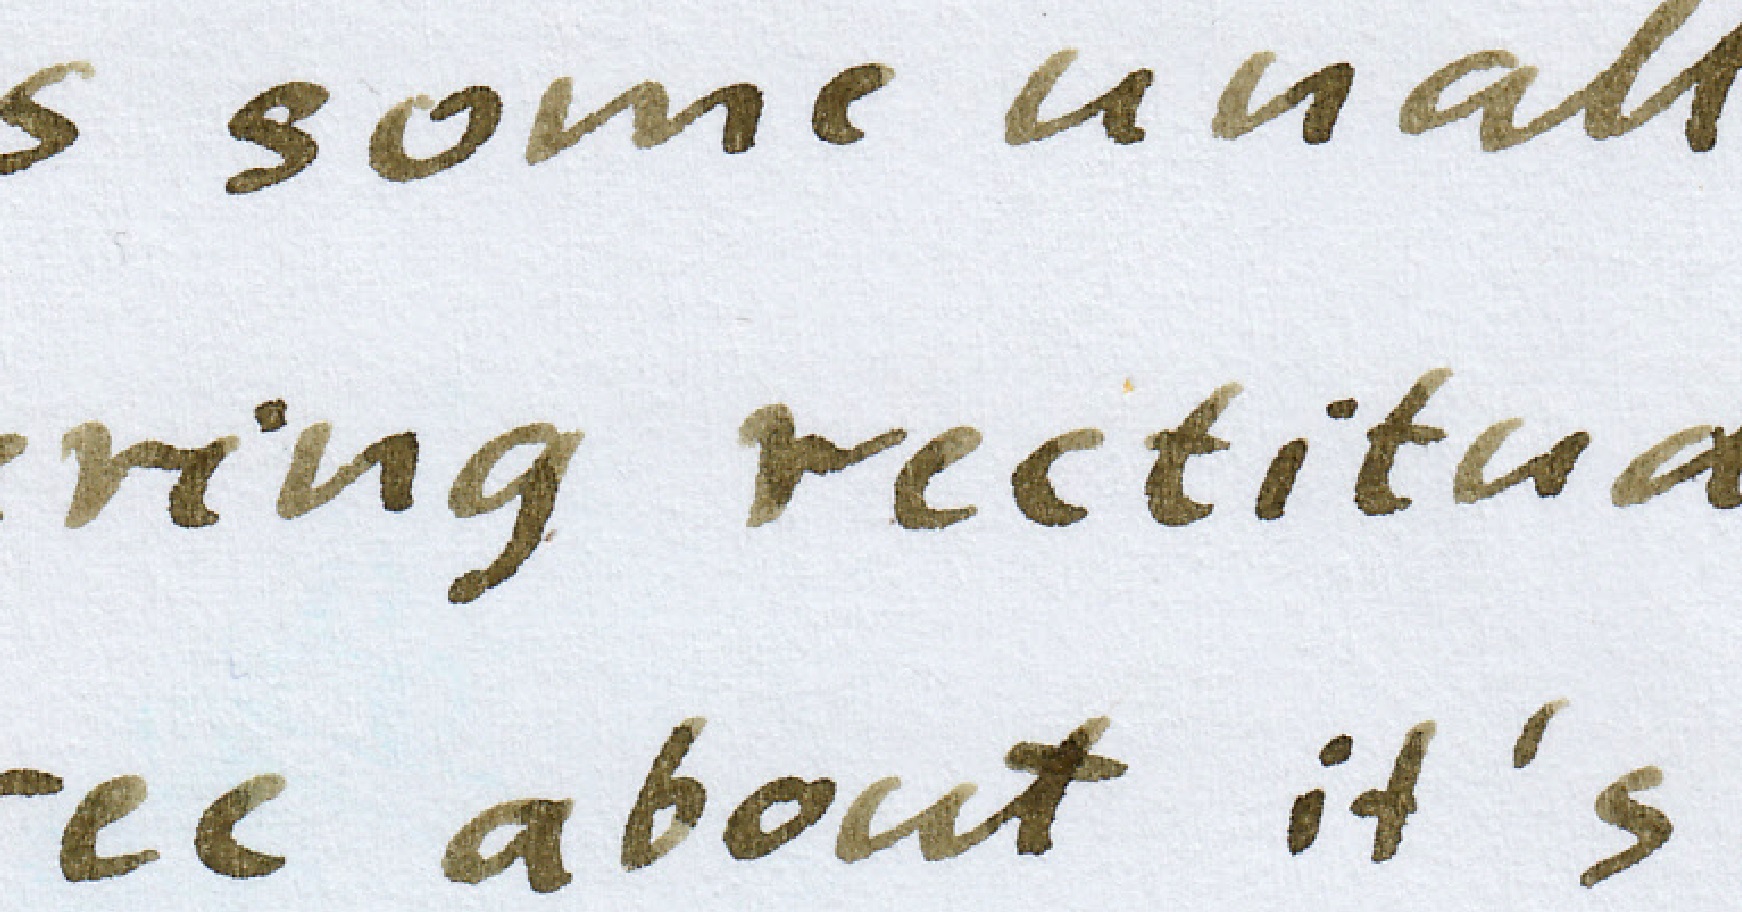 s some unall
ering rectitud
ree about it's